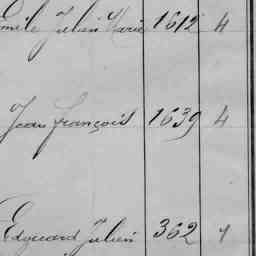 Emile Julien Marie 1612 4
Jean François 1639 4
Edouard Julien 362 4